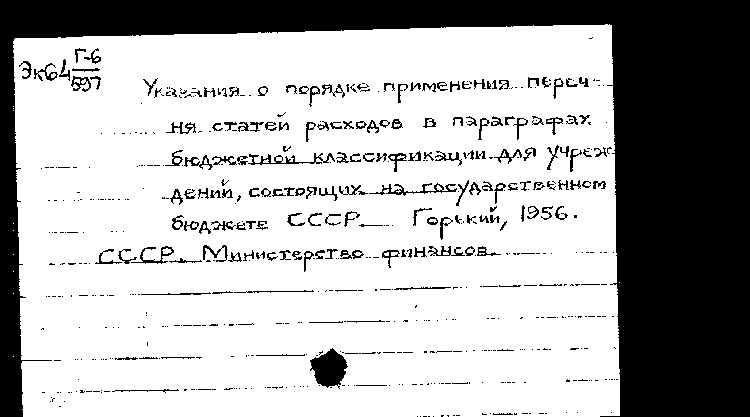 Эк64 Г-6
597
Указания о порядке применения переч-
ня статей расходов в параграфах
бюджетной классификации для учреж
дений, состоящих на государственном
бюджете СССР. Горький, 1956.
СССР. Министерство финансов.